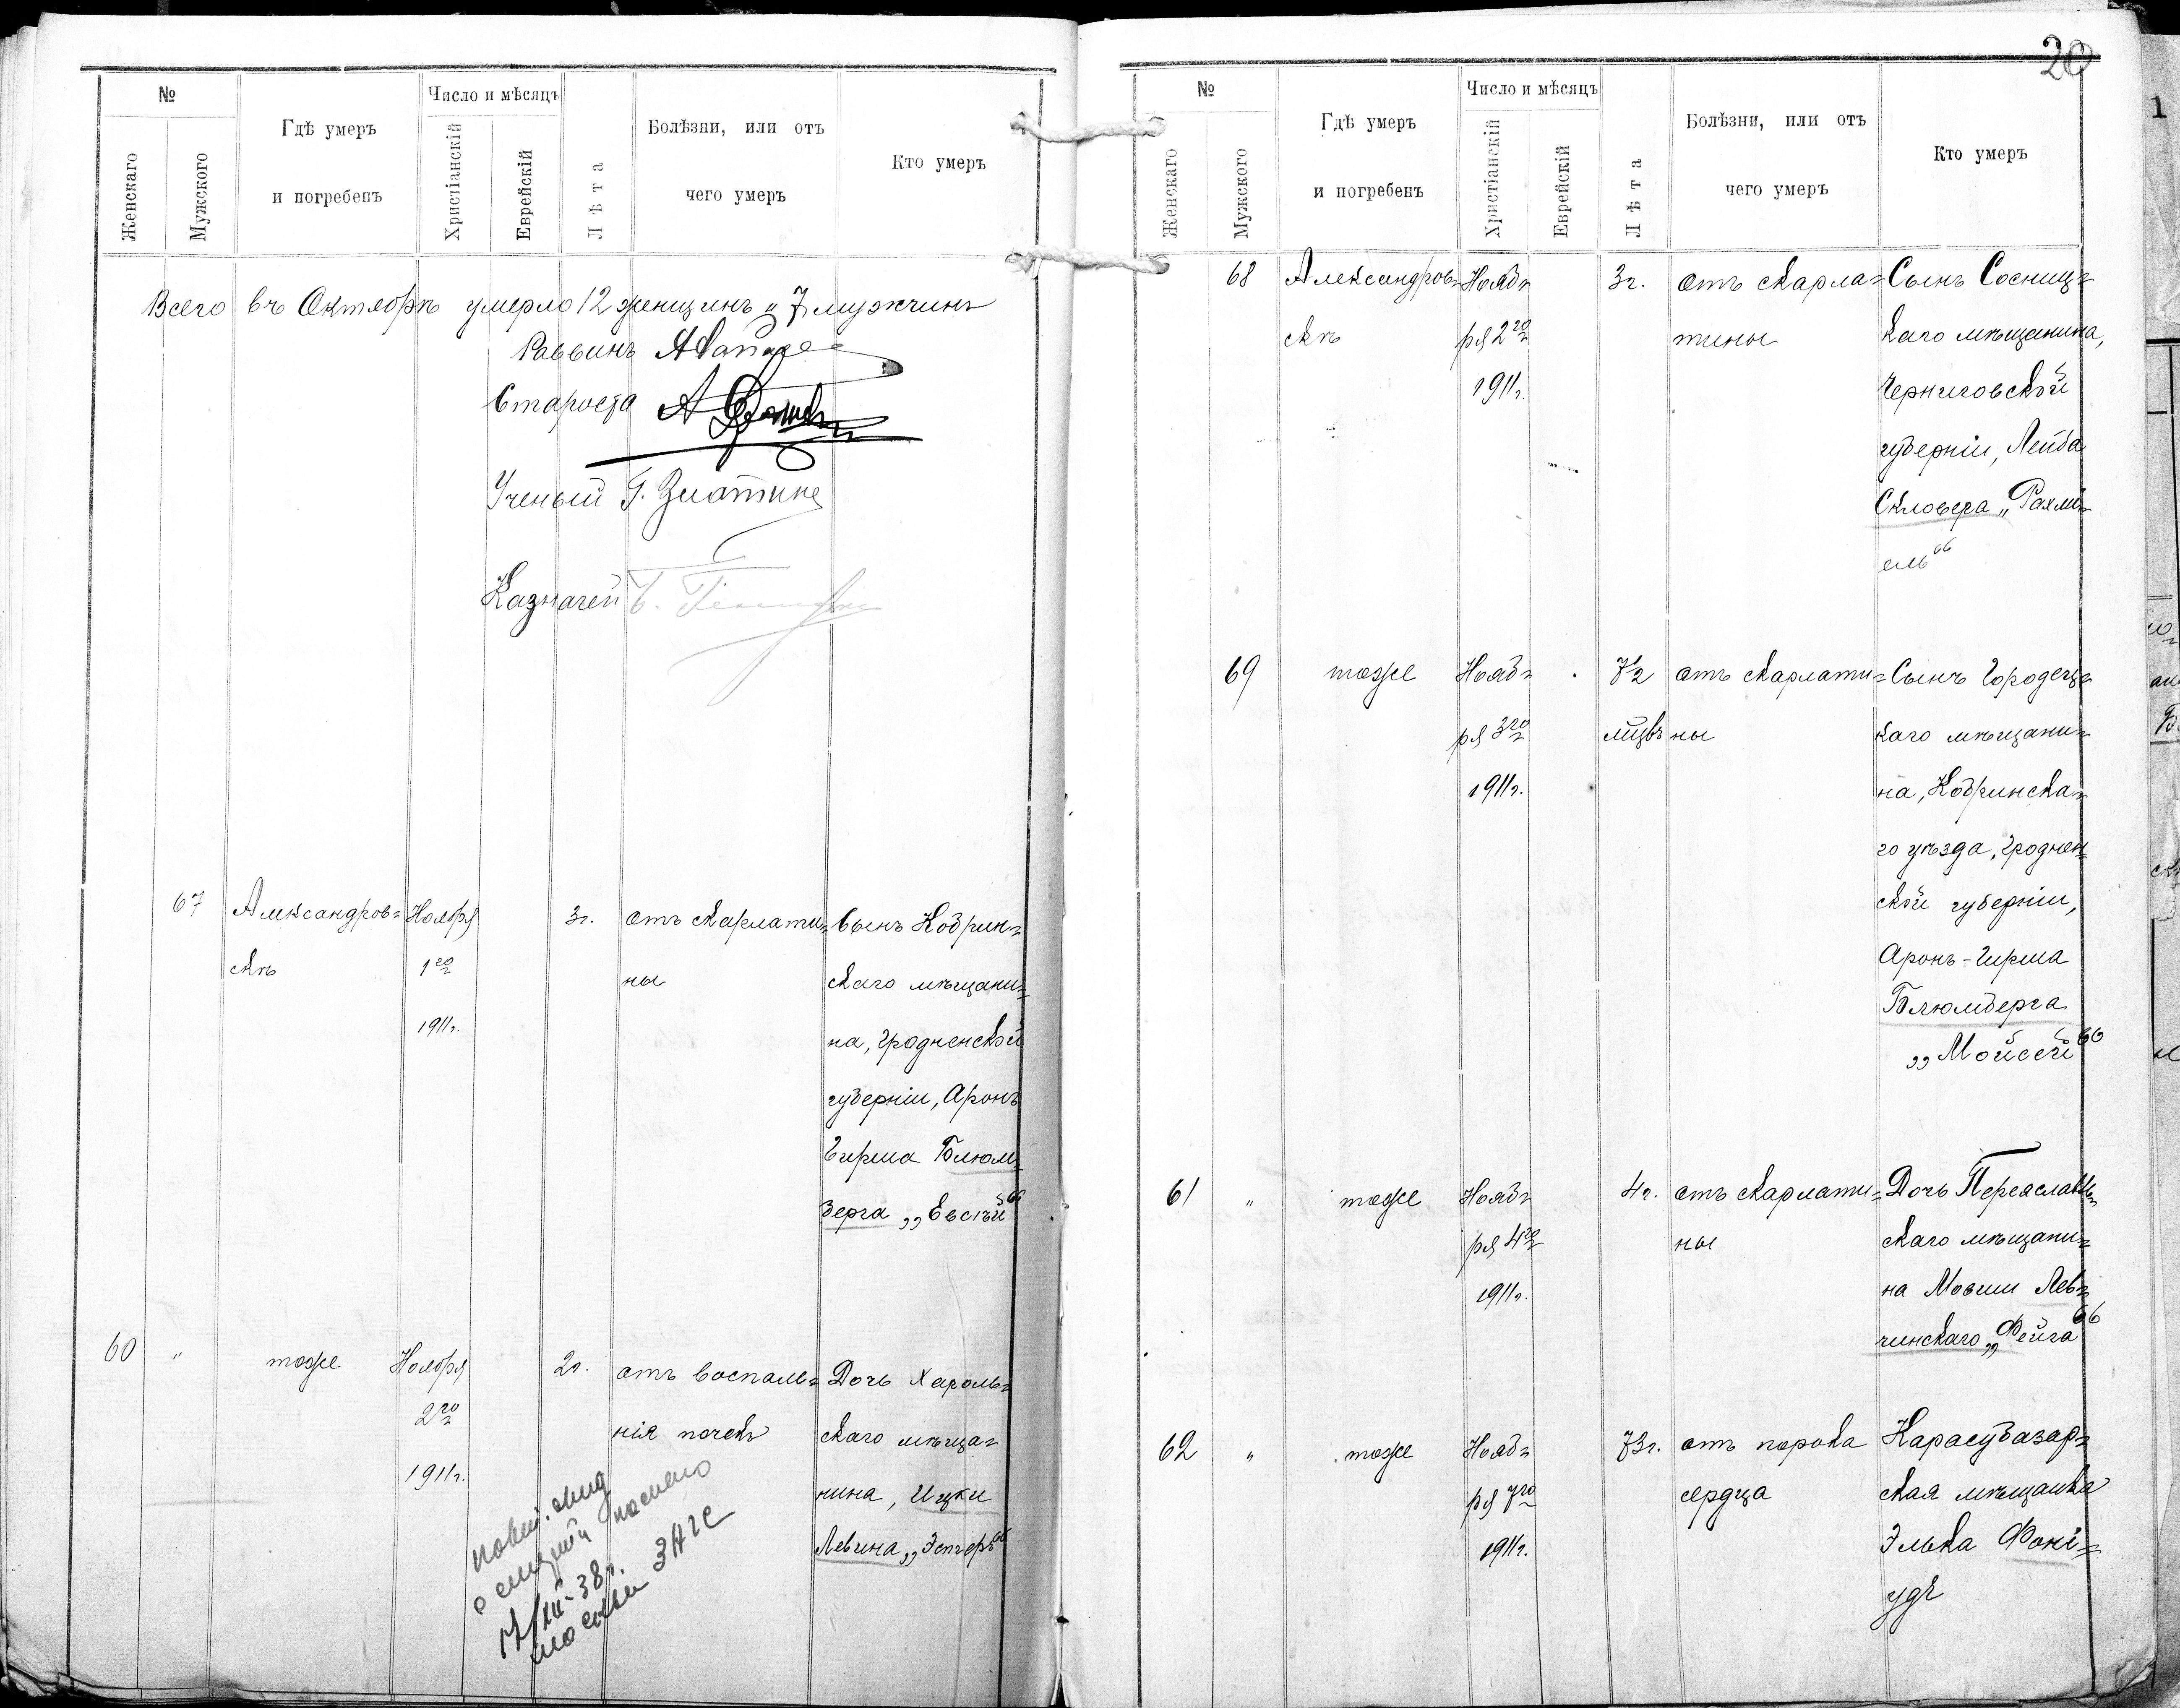 №
Женскаго
Мужского
Гдѣ умеръ
и погребенъ
Число и мѣсяцъ
Христіанскій
Еврейскій
Лѣта
Болѣзни, или отъ
чего умеръ
Кто умеръ
Всего въ Октябрѣ умерло 12 женщинъ и 7 мужчинъ
Раввинъ
Староста
Ученый
Казначей
67
Александров=
скѣ
Ноября
1го
1911г.
3г.
отъ скарлати=
ны
Сынъ Кобрин=
скаго мѣщани=
на, Гродненской
губерніи, Аронъ
Гирша Блюм=
берга „Евсѣй“
60
"
тоже
Ноября
2го
1911г.
2г.
отъ воспале=
нія почекъ
Дочь Хароль=
скаго мѣща=
нина, Ицки
Левина „Эстеръ“
17/XII-38г.
20
№
Женскаго
Мужского
Гдѣ умеръ
и погребенъ
Число и мѣсяцъ
Христіанскій
Еврейскій
Лѣта
Болѣзни, или отъ
чего умеръ
Кто умеръ
68
Александров=
скѣ
Нояб=
ря 2го
1911г.
3г.
отъ скарла=
тины
Сынъ Сосниц=
каго мѣщанина,
Черниговской
губерніи, Лейба
Скловера „Рахми=
ель“
69
тоже
Нояб=
ря 3го
1911г.
7½
мѣсцвъ
отъ скарлати=
ны
Сынъ Городец=
каго мѣщани=
на, Кобринска=
го уѣзда, Гроднен=
ской губерніи,
Аронъ-Гирша
Блюмберга
„Мойсей“
61
"
тоже
Нояб=
ря 4го
1911г.
4г.
отъ скарлати=
ны
Дочь Переяслав=
скаго мѣщани=
на Мовши Лев=
чинскаго „Фейга“
62
"
тоже
Нояб=
ря 7го
1911г.
73г.
отъ порока
сердца
Карасубазар=
ская мѣщанка
Элька